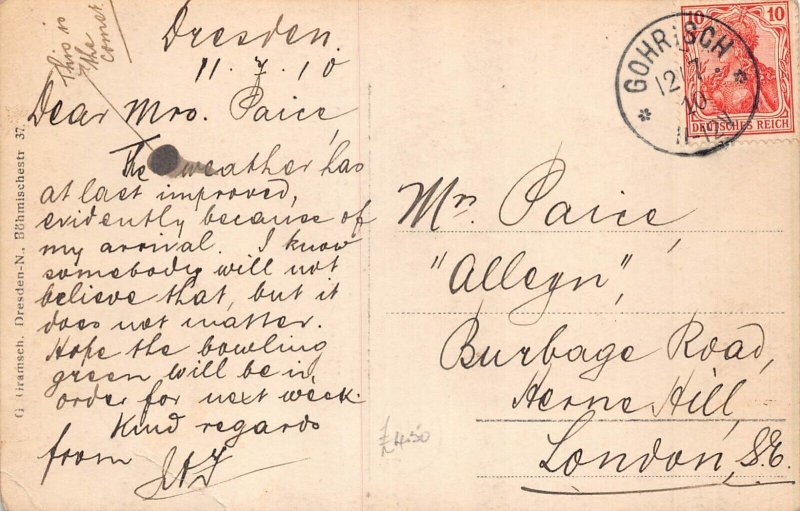 This is
the
comet
Dresden.
11.7.10
Dear Mrs. Paice,
The weather has
at last improved,
evidently because of
my arrival. I know
somebody will not
believe that, but it
does not matter.
Hope the bowling
green will be in
order for next week.
Kind regards
from
G. Gramsch, Dresden-N., Böhmischestr 37.
GOHRISCH
12 7
10
11-12V
10 10
DEUTSCHES REICH
Mrs. Paice,
"Alleyn",
Burbage Road,
Herne Hill,
London, S.E.
£4.50